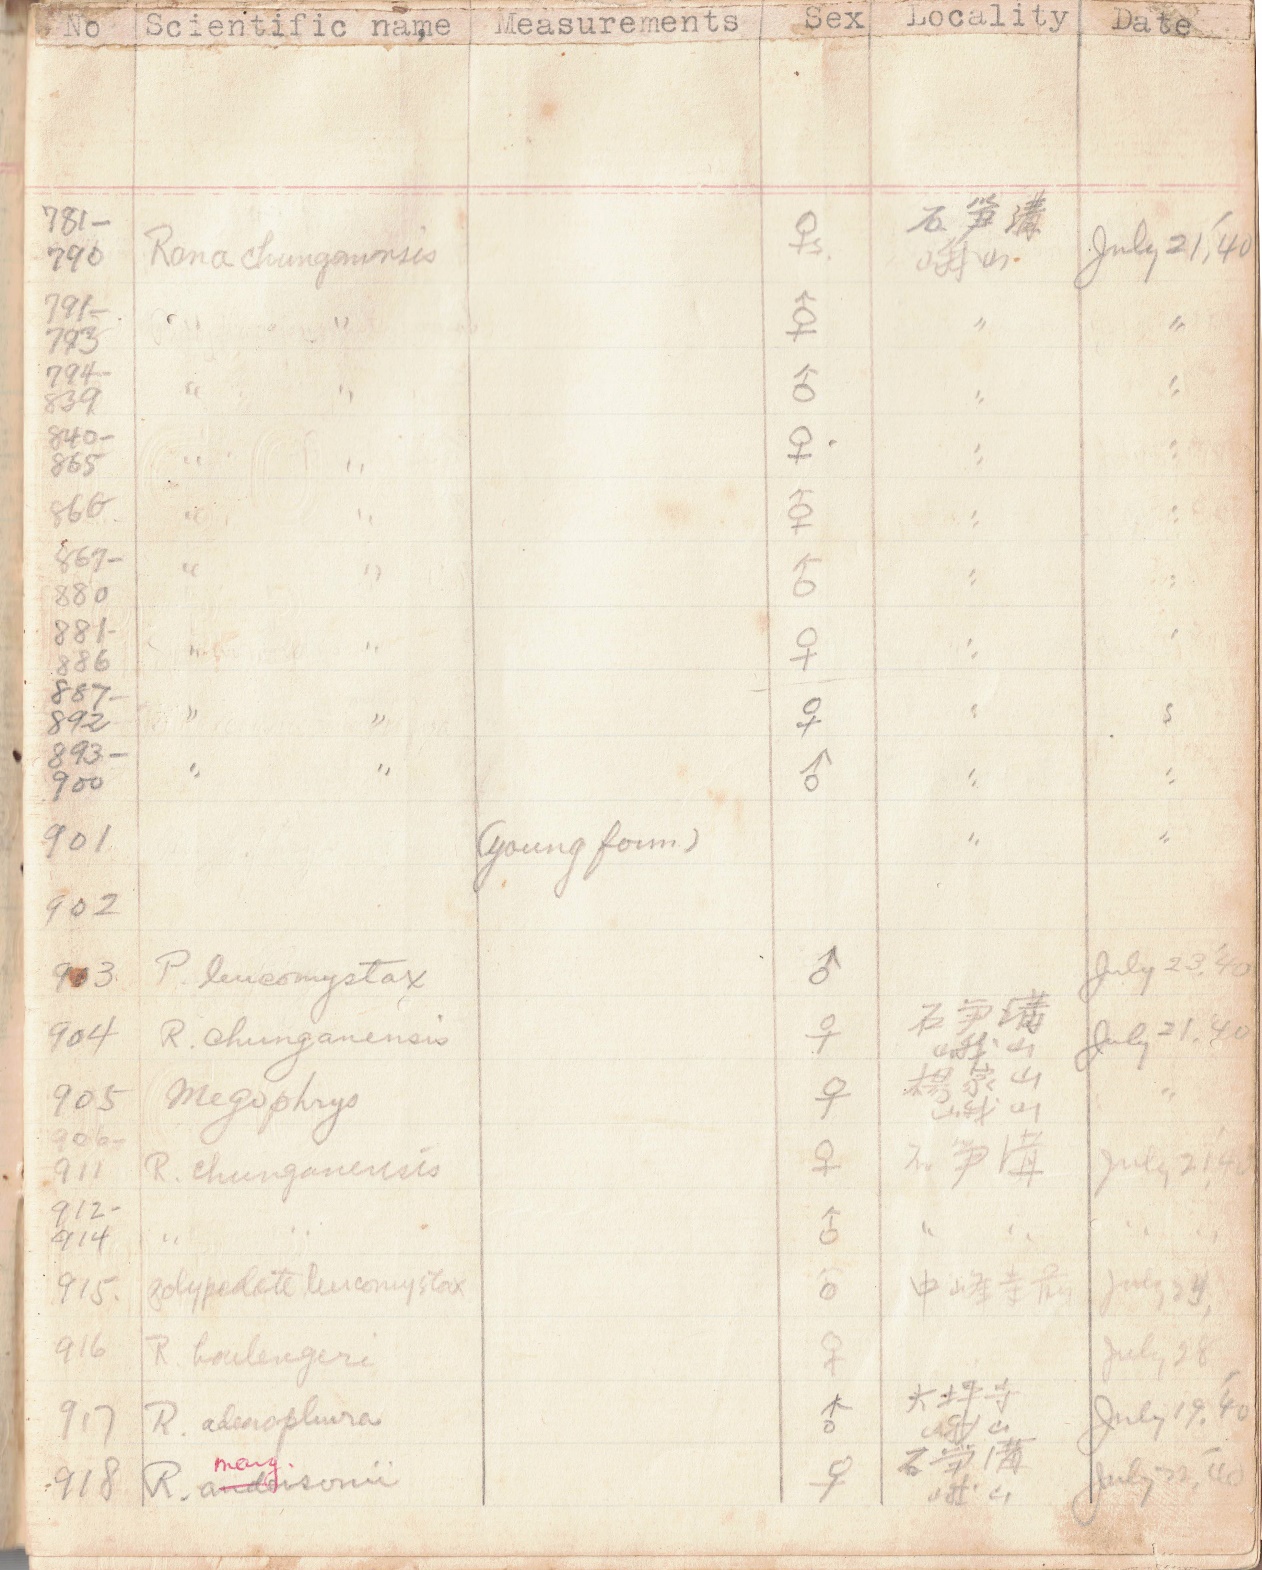 No Scientific name Measurements Sex Locality Date
781-
790 Rana chunganensis ♀s. 石筍溝 峨山 July 21, '40
791-
793 " " ⚦ " "
794-
839 " " ♂ " "
840-
865 " " ♀ " "
866 " " ⚦ " "
867-
880 " " ♂ " "
881-
886 " " ♀ " "
887-
892 " " ♀ " "
893-
900 " " ♂ " "
901 (young form) " "
902
903 P. leucomystax ♂ July 23, '40
904 R. chunganensis ♀ 石筍溝 峨山 July 21, '40
905 Megophrys ♀ 楊家山 峨山 "
906-
911 R. chunganensis ♀ 石筍溝 July 21, '40
912-
914 " " ♂ " " " "
915. polypedate leucomystax ♂ 中峰寺前 July 24,
916 R. boulengeri ♀ July 28
917 R. adenopleura ♂ 大坪寺 峨山 July 19, '40
marg.
918 R. andersonii ♀ 石筍溝 峨山 July 22, '40